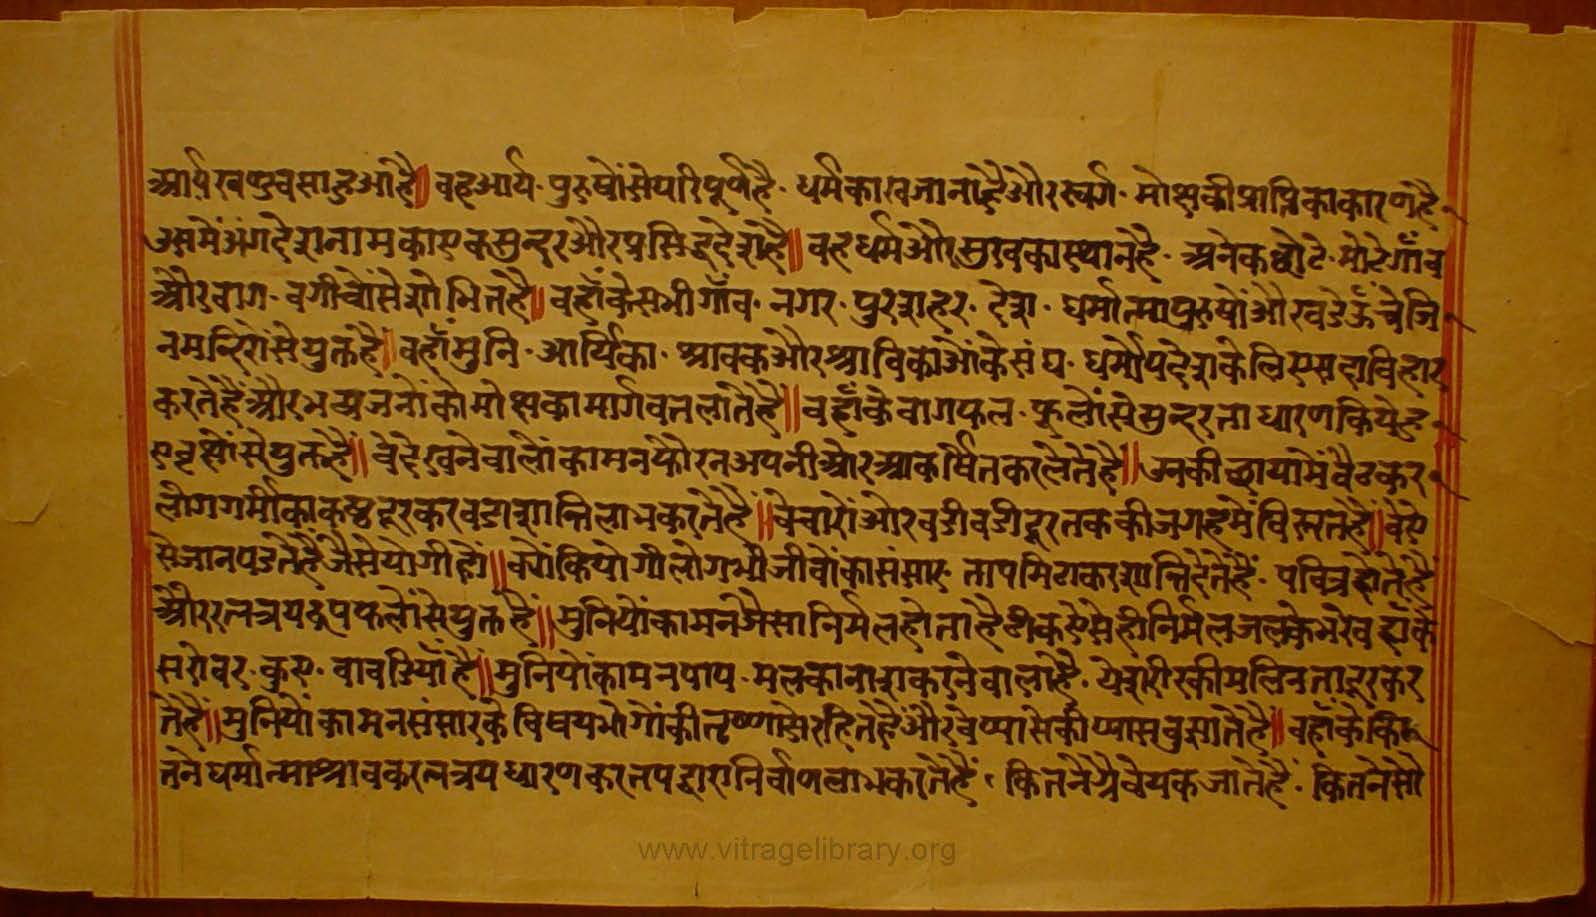 आर्यखण्डबसाहुआहै॥ वहआर्य. पुरुषोंसेपरिपूर्णहै. धर्मकाखजानाहैऔरस्वर्ग. मोक्षकीप्राप्तिकाकारणहै.
उसमेंअंगदेशनामकाएकसुन्दरऔरप्रसिद्धदेशहै॥ वहधर्मऔरसुखकास्थानहै. अनेकछोटे. मोटेगाँव
औरबाग. बगीचोंसेशोभितहै॥ वहाँकेसभीगाँव. नगर. पुरशहर. देश. धर्मात्मापुरुषोंऔरबडेऊँचेजि
नमन्दिरोंसेयुक्तहै॥ वहाँमुनि. आर्यिका. श्रावकऔरश्राविकाओंकेसंघ. धर्मोपदेशकेलिएसदाविहार
करतेहैंऔरभव्यजनोंकोमोक्षकामार्गबतलातेहै॥ वहाँकेबागफल. फूलोंसेसुन्दरताधारणकियेहु
एवृक्षोंसेयुक्तहै॥ वेदेखनेवालोंकामनफौरनअपनीओरआकर्षितकरलेतेहै॥ उनकीछायामेंबैठकर
लोगगर्मीकाकष्टदूरकरबडाशान्तिलाभकरतेहै॥ वेचारोंओरबडीबडीदूरतककीजगहमेंविस्तृतहै॥ वेऐसे
सेजानपडतेहैंजैसेयोगीहो॥ क्योंकियोगीलोगभीजीवोंकासंसार तापमिटाकरशान्तिदेतेहैं. पवित्रहोतेहैं
औररत्नत्रयरूपफलोंसेयुक्तहैं॥ मुनियोंकामनजैसानिर्मलहोताहैठीकऐसेहीनिर्मलजलकेभरेवहाँके
सरोवर. कुए. बावडियाँहैं॥ मुनियोंकामनपाप. मलकानाशकरनेवालाहै. येशरीरकीमलिनतादूरकर
तेहैं॥ मुनियोंकामनसंसारकेविषयभोगोंकीतृष्णासेरहितहैऔरवेप्यासेकीप्यासबुझातेहै॥ वहाँकेकि
तनेधर्मात्माश्रावकरत्नत्रयधारणकरतपद्वारानिर्वाणलाभकरतेहैं. कितनेग्रैवेयकजातेहैं. कितनेसौ
www.vitragelibrary.org